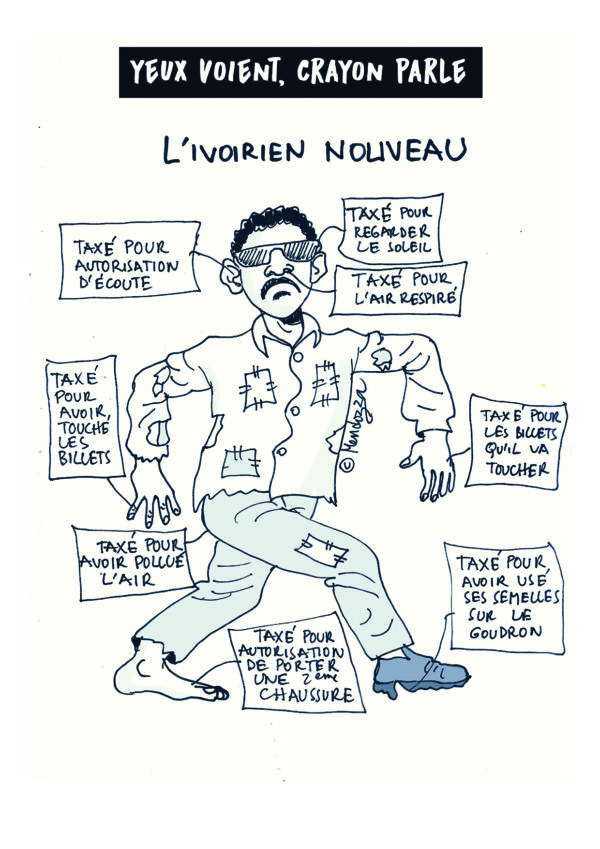 YEUX VOIENT, CRAYON PARLE
L'IVOIRIEN NOUVEAU
TAXÉ POUR
AUTORISATION
D'ÉCOUTE
TAXÉ POUR
REGARDER
LE SOLEIL
TAXÉ POUR
L'AIR RESPIRÉ
TAXÉ
POUR
AVOIR,
TOUCHÉ
LES
BILLETS
© Mendozza
TAXÉ POUR
LES BILLETS
QU'IL VA
TOUCHER
TAXÉ POUR
AVOIR POLLUÉ
L'AIR
TAXÉ POUR,
AVOIR USÉ
SES SEMELLES
SUR LE
GOUDRON
TAXÉ POUR
AUTORISATION
DE PORTER
UNE 2ème
CHAUSSURE